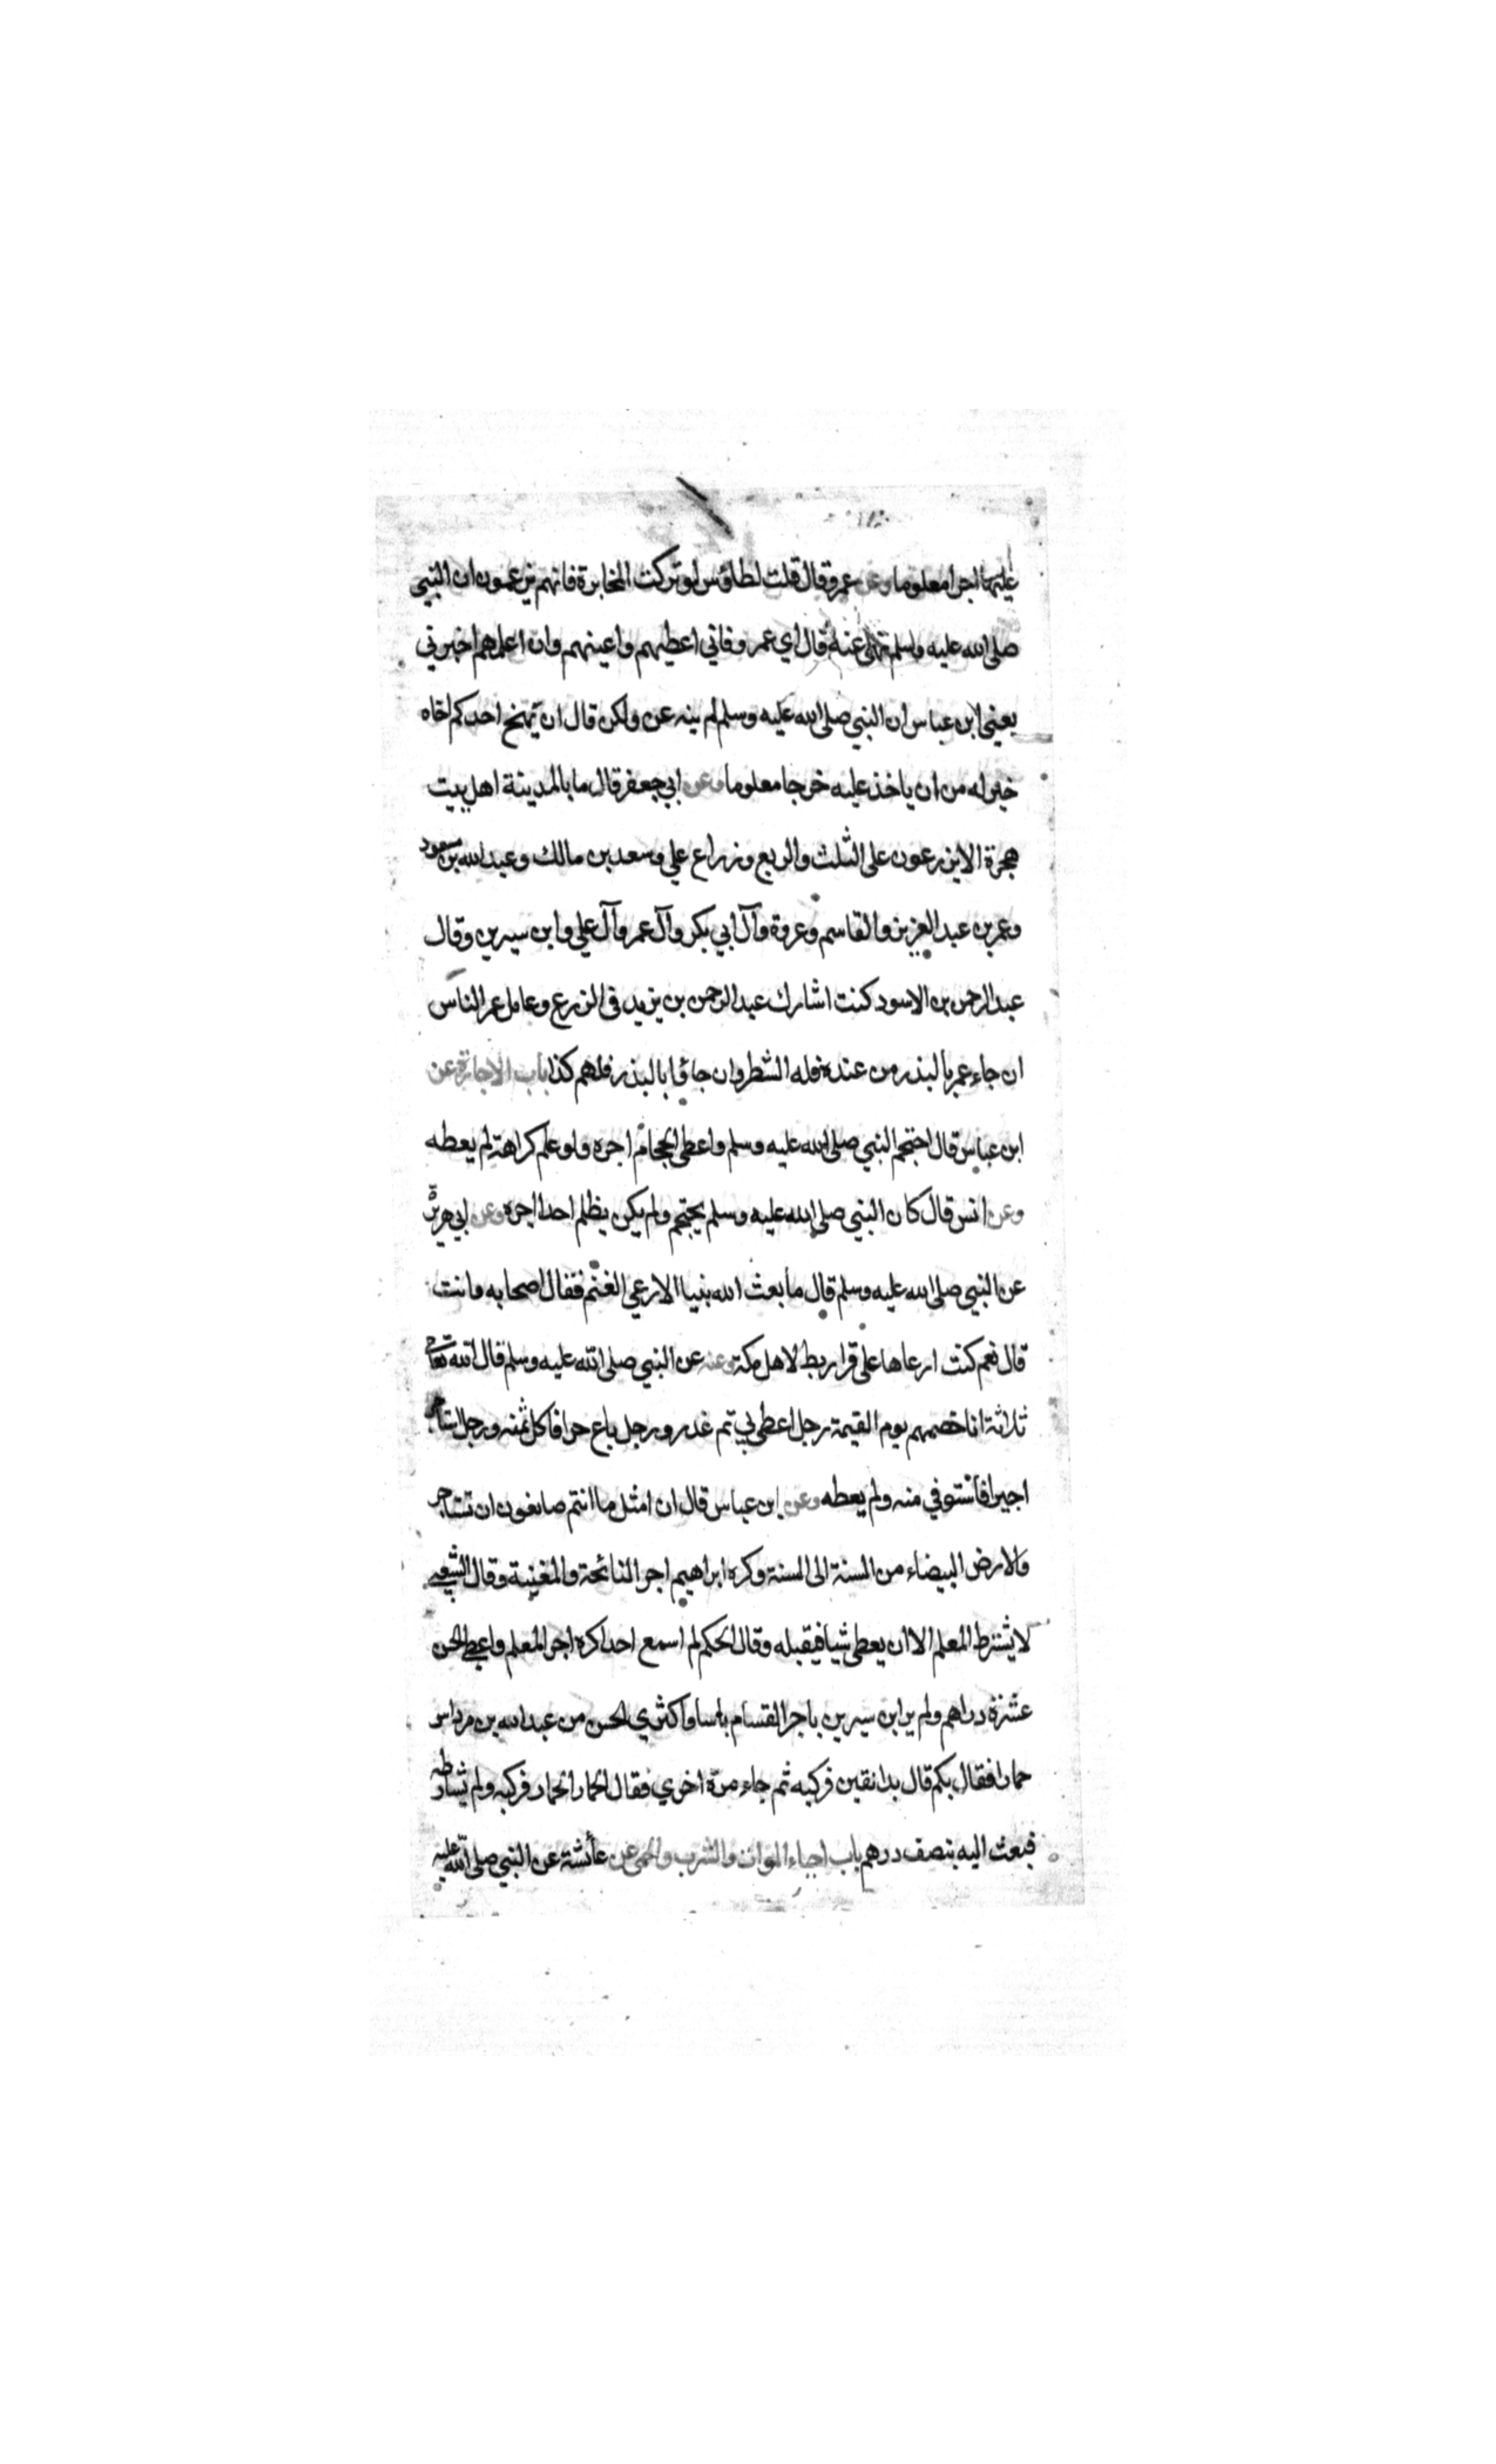 عليها اجرا معلوما وعن عمرو قال قلت لطاؤس لو تركت المخابرة فانهم يزعمون ان النبي
صلى الله عليه وسلم نهى عنه قال اي عمرو فاني اعطيهم واعينهم وان اعلمهم اخبرني
يعني ابن عباس ان النبي صلى الله عليه وسلم لم ينه عن ولكن قال ان يمنح احدكم اخاه
خير له من ان ياخذ عليه خرجا معلوما وعن ابي جعفر قال ما بالمدينة اهل بيت
هجرة الا يزرعون على الثلث والربع وزراع علي وسعد بن مالك وعبد الله بن مسعود
وعمر بن عبد العزيز والقاسم وعروة وآل ابي بكر وآل عمر وآل علي وابن سيرين وقال
عبد الرحمن بن الاسود كنت اشارك عبد الرحمن بن يزيد في الزرع وعامل عمر الناس
ان جاء عمر بالبذر من عنده فله الشطر وان جاؤا بالبذر فلهم كذا باب الاجارة عن
ابن عباس قال احتجم النبي صلى الله عليه وسلم واعطى الحجام اجره ولو علم كراهة لم يعطه
وعن انس قال كان النبي صلى الله عليه وسلم يحتجم ولم يكن يظلم احدا اجره وعن ابي هريرة
عن النبي صلى الله عليه وسلم قال ما بعث الله نبيا الا رعي الغنم فقال اصحابه وانت
قال نعم كنت ارعاها على قراريط لاهل مكة وعنه عن النبي صلى الله عليه وسلم قال الله تعالى
ثلاثة انا خصمهم يوم القيمة رجل اعطى بي ثم غدر ورجل باع حرا فاكل ثمنه ورجل استاجر
اجيرا فاستوفي منه ولم يعطه وعن ابن عباس قال ان امثل ما انتم صانعون ان تستاجر
والارض البيضاء من السنة الى السنة وكره ابراهيم اجر النائحة والمغنية وقال الشعبي
لا يشترط المعلم الا ان يعطى شيا فيقبله وقال الحكم لم اسمع احدا كره اجر المعلم واعطى الحسن
عشرة دراهم ولم ير ابن سيرين باجر القسام باسا واكترى الحسن من عبد الله بن مرداس
حمارا فقال بكم قال بدانقين فركبه ثم جاء مرة اخري فقال الحمار الحمار فركبه ولم يشارطه
فبعث اليه بنصف درهم باب احياء الموات والشرب والحمى عن عائشة عن النبي صلى الله عليه